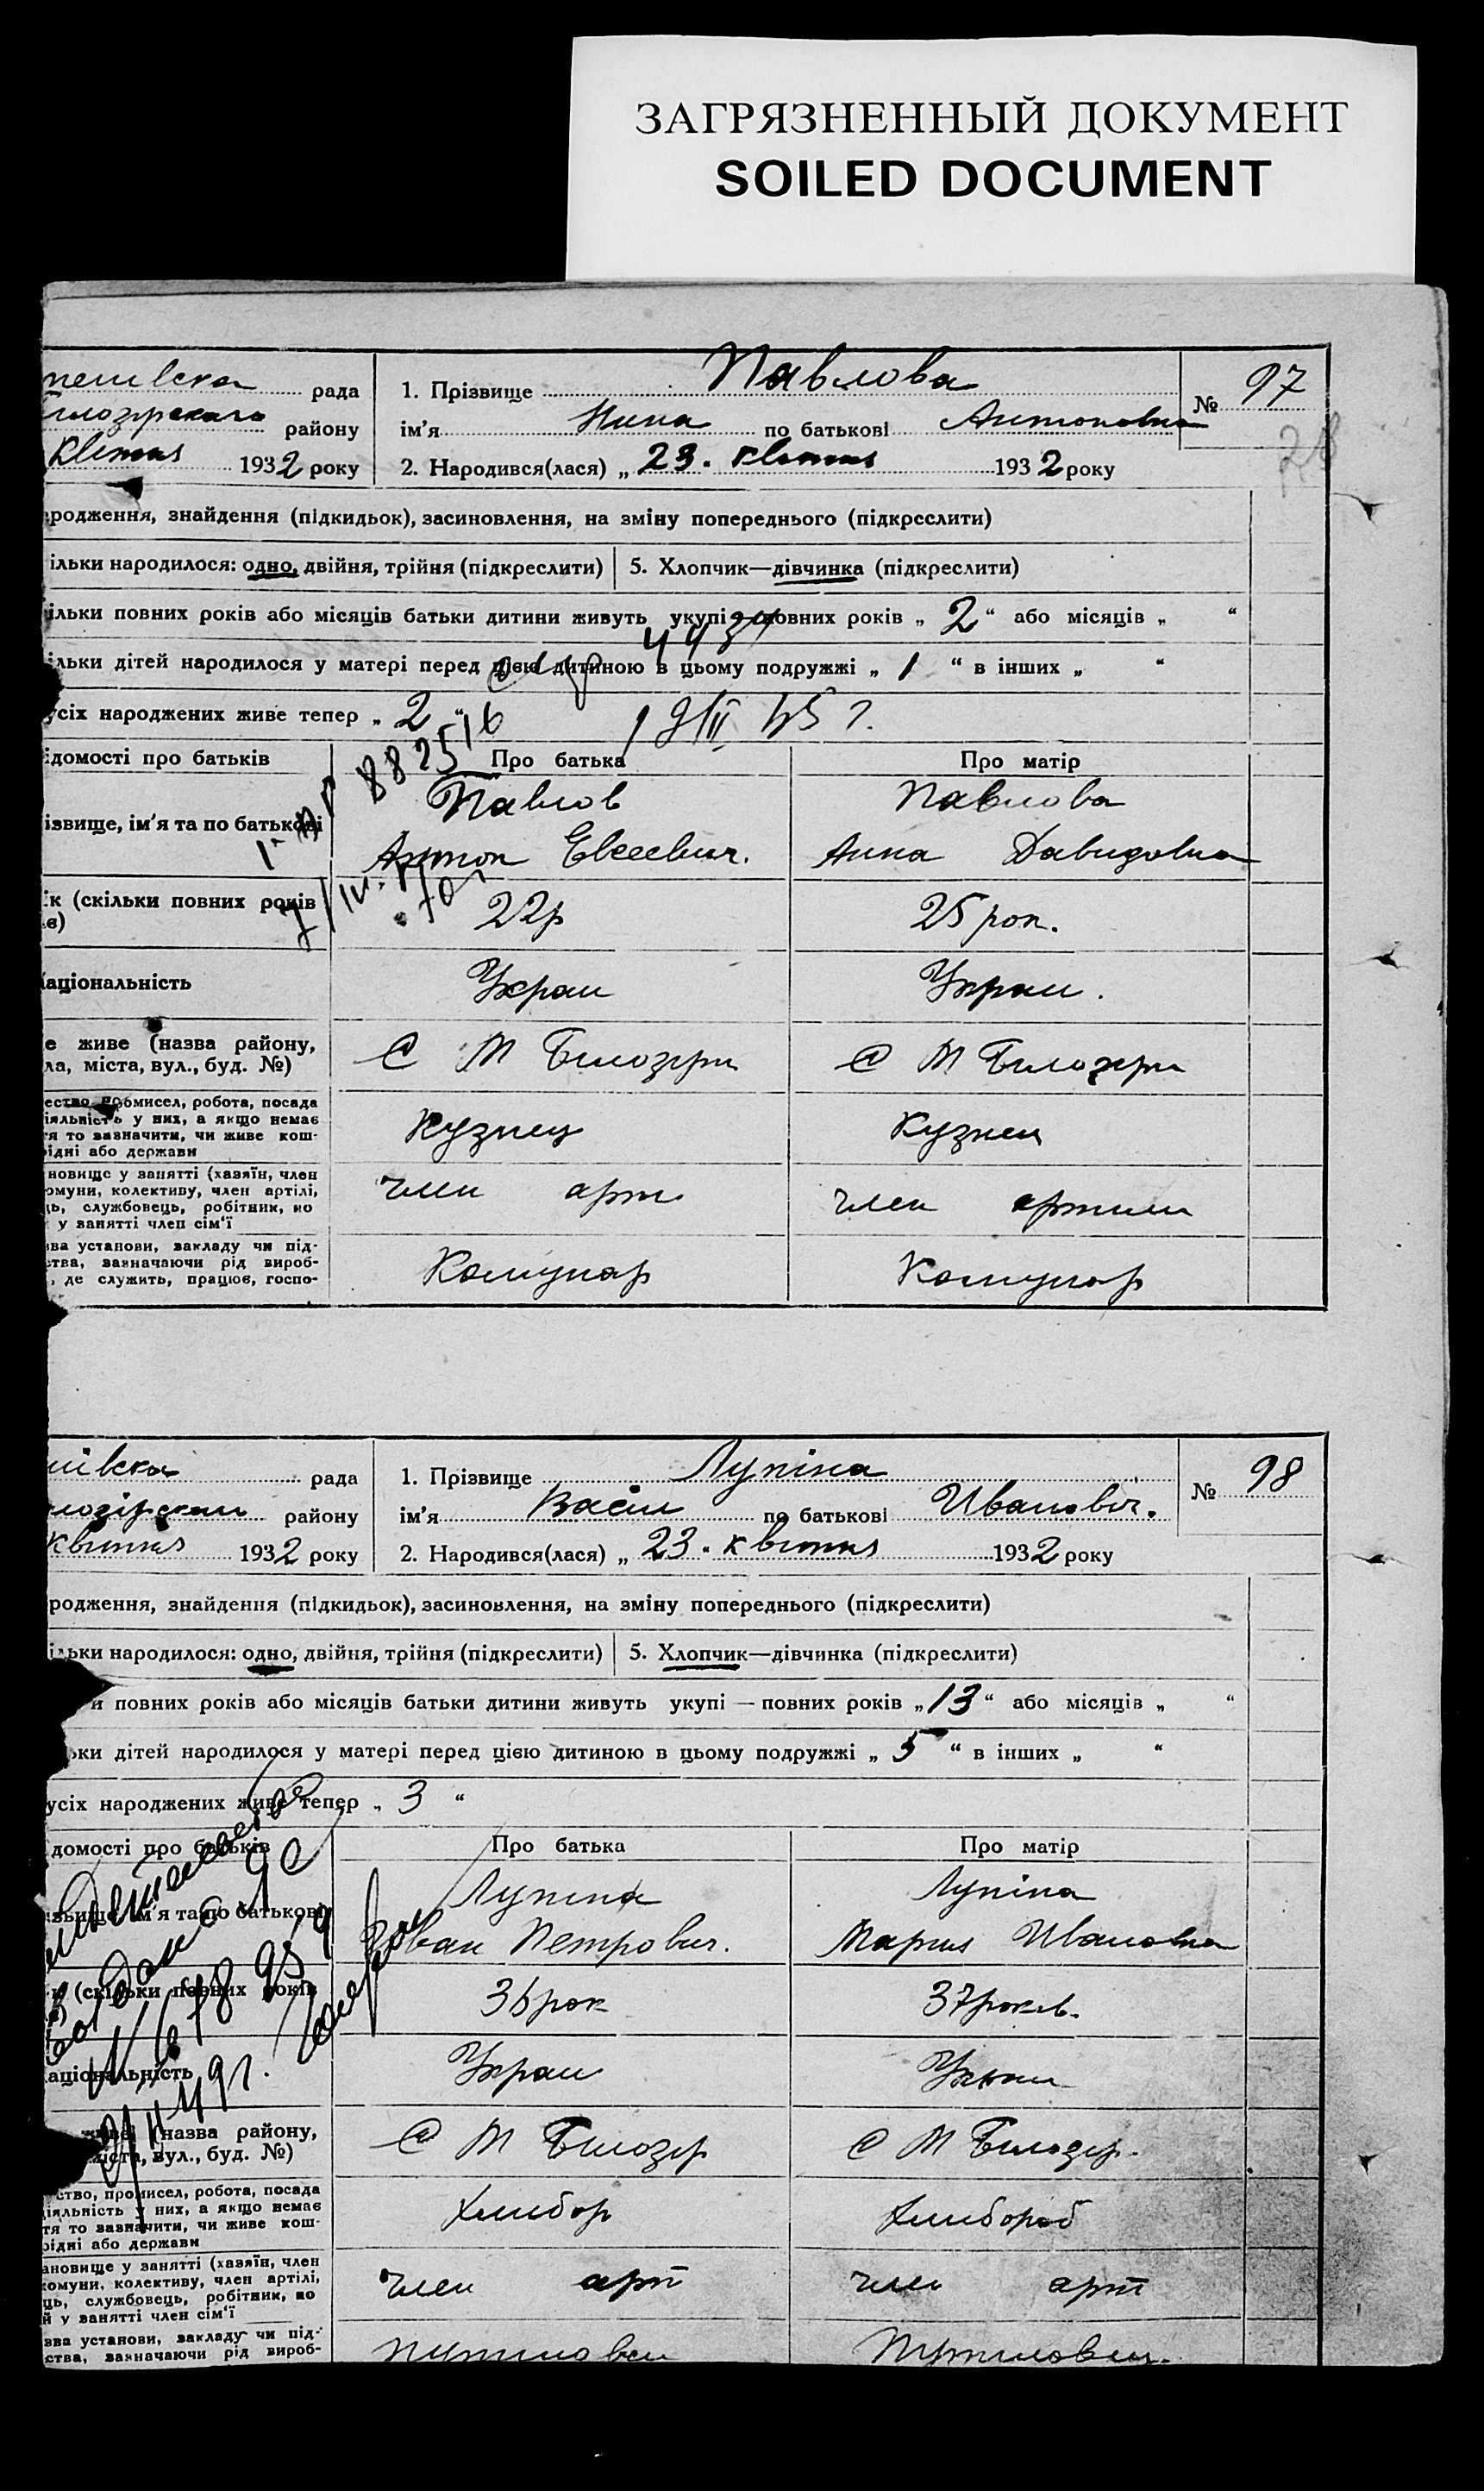 ЗАГРЯЗНЕННЫЙ ДОКУМЕНТ
SOILED DOCUMENT
рада
району
193 2 року
1. Прізвище Павлова
ім'я Нина по батькові Антоновна
2. Народився(лася) „ 23. квітня 193 2 року
№ 97
28
родження, знайдення (підкидьок), засиновлення, на зміну попереднього (підкреслити)
ільки народилося: одно, двійня, трійня (підкреслити) 5. Хлопчик—дівчинка (підкреслити)
ільки повних років або місяців батьки дитини живуть укупі — повних років „ 2 “ або місяців „ “
ільки дітей народилося у матері перед цією дитиною в цьому подружжі „ 1 “ в інших „ “
усіх народжених живе тепер „ 2 “
ідомості про батьків Про батька Про матір
ізвище, ім'я та по батькові
Павлов Павлова
Антон Евсеевич. Анна Давидовна
ік (скільки повних років
ів)
22р 25 рок.
аціональність Украи Украи.
е живе (назва району,
ла, міста, вул., буд. №)
С М Билозирки С М Билозирки
ество промисел, робота, посада
іяльність у них, а якщо немає
тя то зазначити, чи живе кош-
рідні або держави
Кузнец Кузнец
новище у занятті (хазяїн, член
омуни, колективу, член артілі,
ць, службовець, робітник, по
у занятті член сім'ї
член арти член артили
ива установи, закладу чи під-
ства, зазначаючи рід вироб-
, де служить, працює, госпо-
Комунар Комунар
рада
району
Квитня 193 2 року
1. Прізвище Лупіна
ім'я Васил по батькові Иванович.
2. Народився(лася) „ 23. квитня 193 2 року
№ 98
родження, знайдення (підкидьок), засиновлення, на зміну попереднього (підкреслити)
ільки народилося: одно, двійня, трійня (підкреслити) 5. Хлопчик—дівчинка (підкреслити)
и повних років або місяців батьки дитини живуть укупі — повних років „ 13 “ або місяців „ “
ьки дітей народилося у матері перед цією дитиною в цьому подружжі „ 5 “ в інших „ “
усіх народжених живе тепер „ 3 “
домості про батьків Про батька Про матір
ізвище, ім'я та по батькові
Лупіна Лупіна
Иван Петрович. Мария Ивановна
к (скільки повних років
36 рок 37 роков.
аціональність Украи Украи
живе (назва району,
міста, вул., буд. №)
С М Билозер С М Билозер.
ство, промисел, робота, посада
іяльність у них, а якщо немає
тя то зазначити, чи живе кош-
рідні або держави
Хлибор Хлибороб
ановище у занятті (хазяїн, член
комуни, колективу, член артілі,
ць, службовець, робітник, по
й у занятті член сім'ї
член арт член арт
зва установи, закладу чи під-
ства, зазначаючи рід вироб-